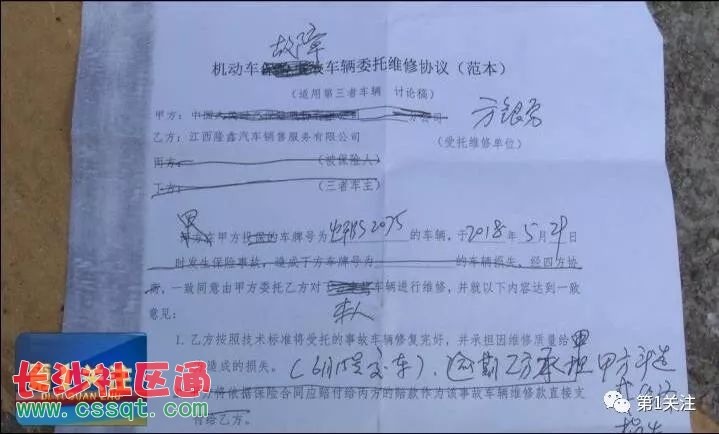 故障
机动车车辆委托维修协议（范本）
（适用第三者车辆 讨论稿）
甲方：中国
乙方：江西隆鑫汽车销售服务有限公司 （受托维修单位）
丙方： （被保险人）
丁方： （三者车主）
甲
方在甲方投保的车牌号为 2075 的车辆，于2018年5月29日
时发生保险事故，造成丁方车牌号为 的车辆损失，经四方协
一致同意由甲方委托乙方对 车辆进行维修，并就以下内容达到一致
意见： 本人
1. 乙方按照技术标准将受托的事故车辆修复完好，并承担因维修质量给甲
造成的损失。（6月15号交车），逾期乙方承担甲方
方将依据保险合同应赔付给丙方的赔款作为该事故车辆维修款直接支
付给乙方。
长沙社区通
www.cssqt.com
第1关注